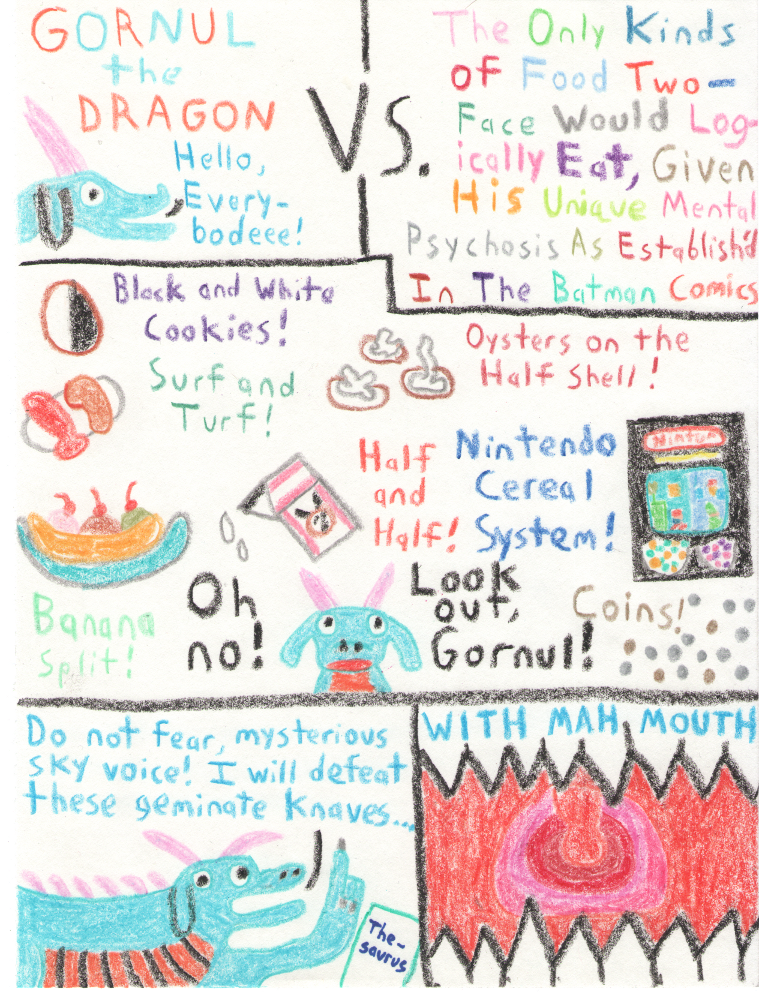 GORNUL
the
DRAGON
Hello,
Every-
bodeee!
VS.
The Only Kinds
of Food Two-
Face Would Log-
ically Eat, Given
His Unique Mental
Psychosis As Establish'd
In The Batman Comics
Black and White
Cookies!
Oysters on the
Half Shell!
Surf and
Turf!
Half
and
Half!
Nintendo
Cereal
System!
Banana
Split!
Oh
no!
Look
out,
Gornul!
Coins!
Do not fear, mysterious
sky voice! I will defeat
these geminate knaves...
The-
saurus
WITH MAH MOUTH